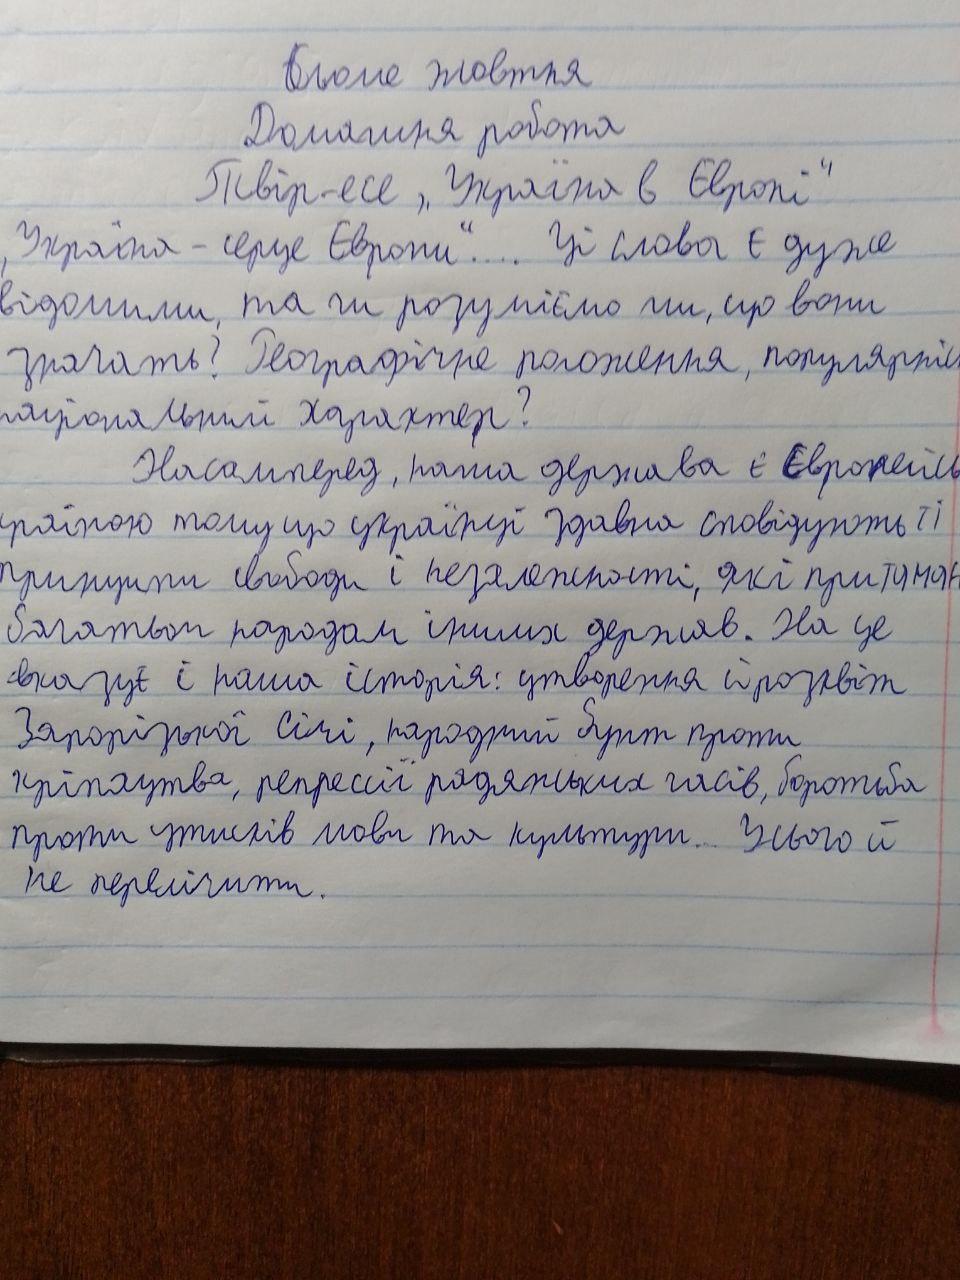 Сьоме жовтня
Домашня робота
Твір-есе „Україна в Європі“
„Україна - серце Європи“.... Ці слова є дуже
відомими, та чи розуміємо ми, що вони
значать? Географічне положення, популярніс
національний характер?
Насамперед, наша держава є Європейсь
країною тому що українці здавна сповідують ті
принципи свободи і незалежності, які притаман
багатьом народам інших держав. На це
вказує і наша історія: утворення й розквіт
Запорізької Січі, народний бунт проти
кріпацтва, репрессії радянських часів, боротьба
проти утисків мови та культури... Усього й
не перелічити.